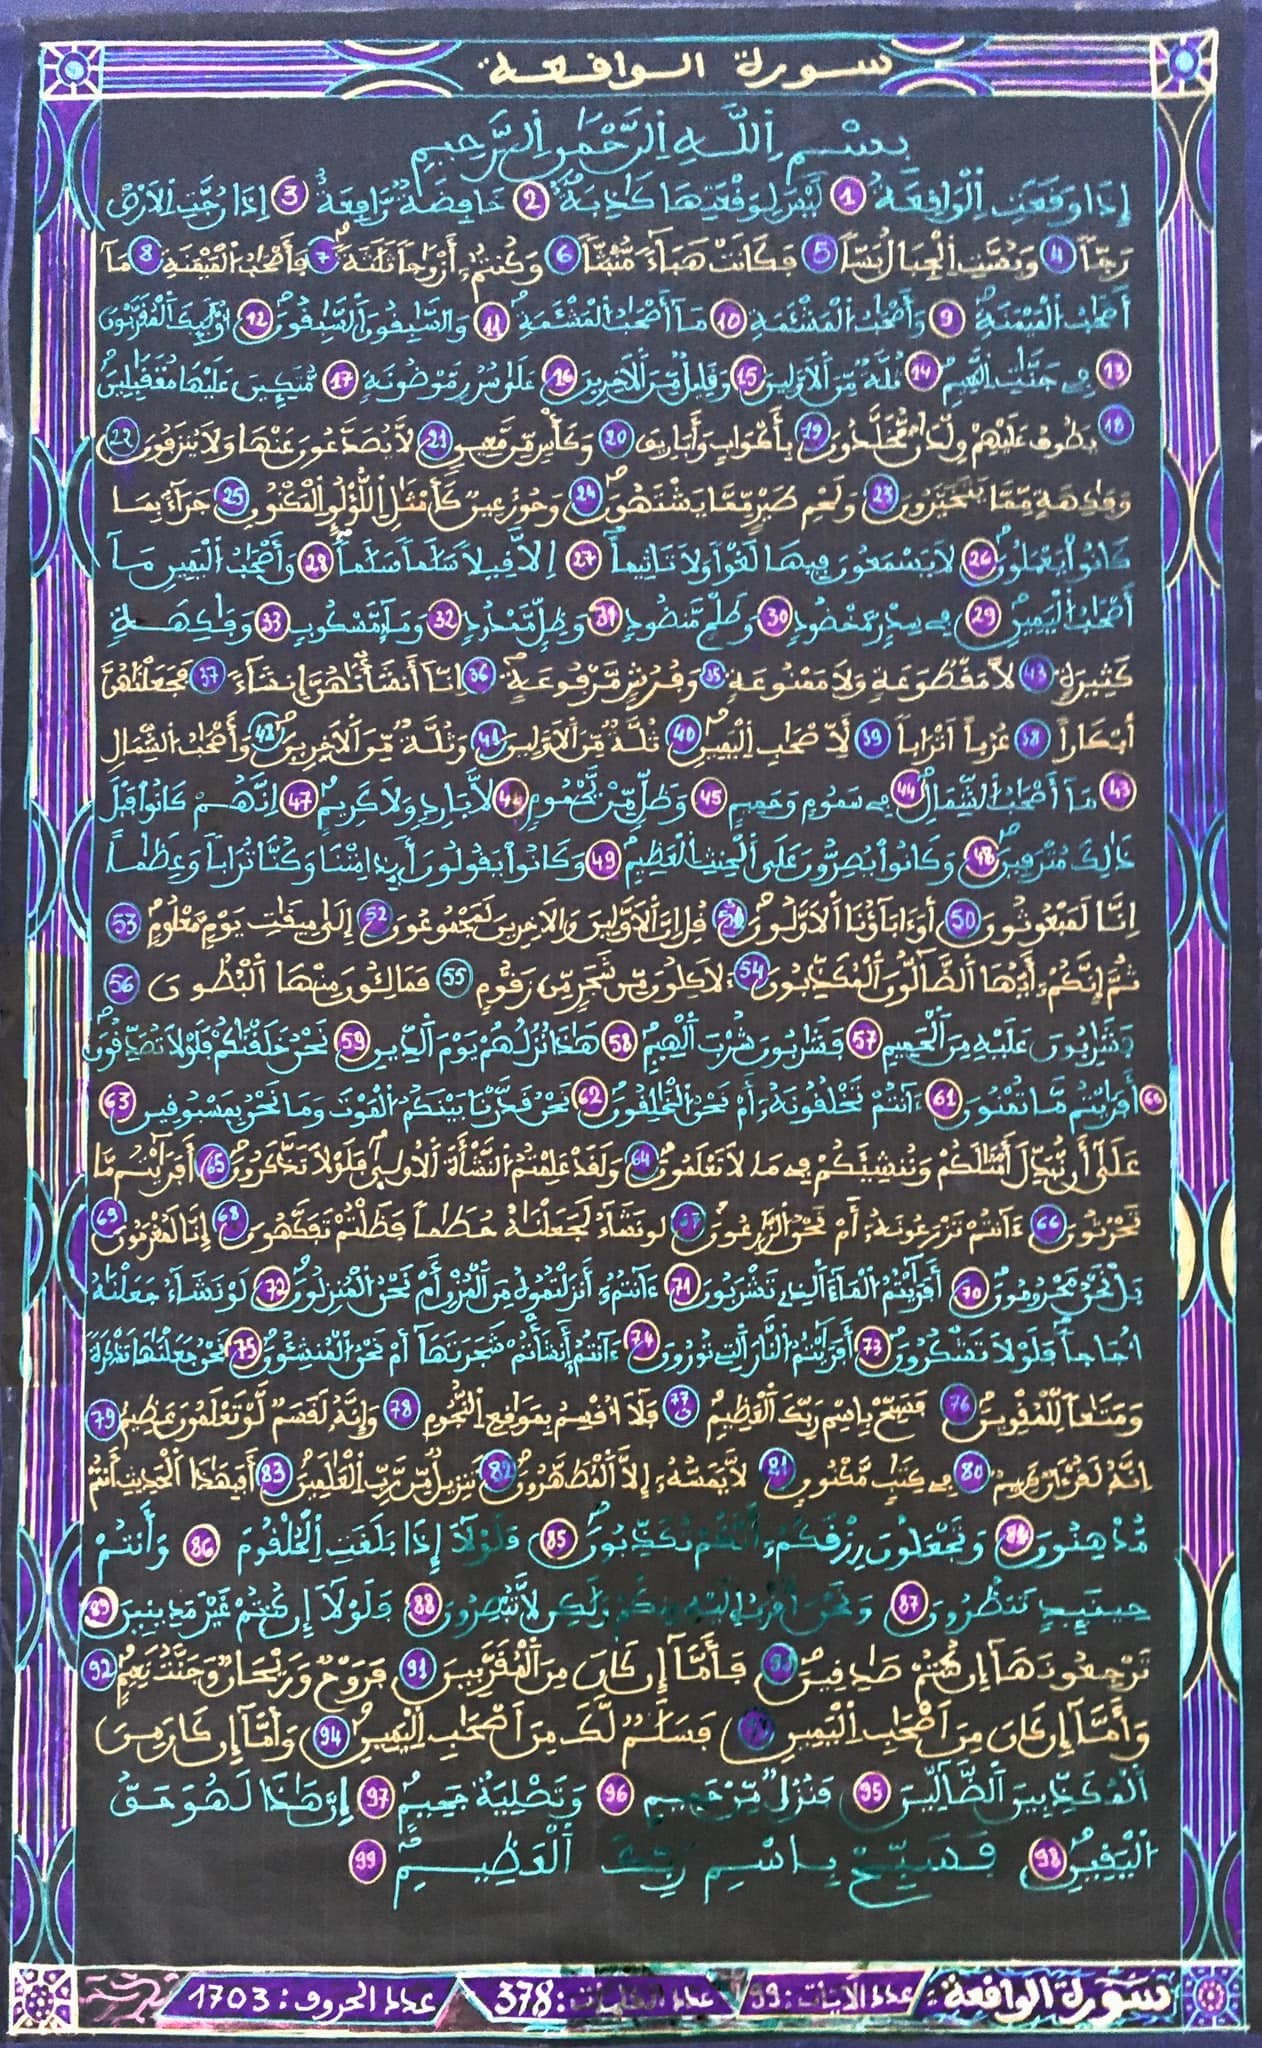 سورة الواقعة
بِسْمِ اِللَّهِ اِلرَّحْمَٰنِ اِلرَّحِيمِ
إِذَا وَقَعَتِ اِلْوَاقِعَةُ 1 لَيْسَ لِوَقْعَتِهَا كَاذِبَةٌ 2 خَافِضَةٌ رَّافِعَةٌ 3 إِذَا رُجَّتِ اِلَارْضُ
رَجّاً 4 وَبُسَّتِ اِلْجِبَالُ بَسّاً 5 فَكَانَتْ هَبَآءً مُّنْبَثّاً 6 وَكُنتُمُۥٓ أَزْوَٰجاً ثَلَٰثَةً 7 فَأَصْحَٰبُ اُلْمَيْمَنَةِ 8 مَآ
أَصْحَٰبُ اُلْمَيْمَنَةِ 9 وَأَصْحَٰبُ اُلْمَشْـَٔمَةِ 10 مَآ أَصْحَٰبُ اُلْمَشْـَٔمَةِ 11 وَالسَّٰبِقُونَ اَلسَّٰبِقُونَ 12 أُوْلَٰٓئِكَ اَلْمُقَرَّبُونَ
13 فِے جَنَّٰتِ اِلنَّعِيمِ 14 ثُلَّةٌ مِّنَ اَلَاوَّلِينَ 15 وَقَلِيلٌ مِّنَ اَلَاخِرِينَ 16 عَلَىٰ سُرُرٍ مَّوْضُونَةٍ 17 مُّتَّكِـِٔينَ عَلَيْهَا مُتَقَٰبِلِينَ
18 يَطُوفُ عَلَيْهِمْ وِلْدَٰنٌ مُّخَلَّدُونَ 19 بِأَكْوَابٍ وَأَبَارِيقَ 20 وَكَأْسٍ مِّن مَّعِينٍ 21 لَّا يُصَدَّعُونَ عَنْهَا وَلَا يُنزَفُونَ 22
وَفَٰكِهَةٍ مِّمَّا يَتَخَيَّرُونَ 23 وَلَحْمِ طَيْرٍ مِّمَّا يَشْتَهُونَ 24 وَحُورٌ عِينٌ كَأَمْثَٰلِ اِللُّؤْلُوِٕ اِلْمَكْنُونِ 25 جَزَآءً بِمَا
كَانُواْ يَعْمَلُونَ 26 لَا يَسْمَعُونَ فِيهَا لَغْواً وَلَا تَاثِيماً 27 اِلَّا قِيلاً سَلَٰماً سَلَٰماً 28 وَأَصْحَٰبُ اُلْيَمِينِ مَآ
أَصْحَٰبُ اُلْيَمِينِ 29 فِے سِدْرٍ مَّخْضُودٍ 30 وَطَلْحٍ مَّنضُودٍ 31 وَظِلٍّ مَّمْدُودٍ 32 وَمَآءٍ مَّسْكُوبٍ 33 وَفَٰكِهَةٍ
كَثِيرَةٍ 43 لَّا مَقْطُوعَةٍ وَلَا مَمْنُوعَةٍ 35 وَفُرُشٍ مَّرْفُوعَةٍ 36 اِنَّآ أَنشَأْنَٰهُنَّ إِنشَآءً 37 فَجَعَلْنَٰهُنَّ
أَبْكَاراً 38 عُرُباً اَتْرَاباً 39 لِّأَصْحَٰبِ اِلْيَمِينِ 40 ثُلَّةٌ مِّنَ اَلَاوَّلِينَ 41 وَثُلَّةٌ مِّنَ اَلَاخِرِينَ وَأَصْحَٰبُ اُلشِّمَالِ
43 مَآ أَصْحَٰبُ اُلشِّمَالِ 44 فِے سَمُومٍ وَحَمِيمٍ 45 وَظِلٍّ مِّنْ يَّحْمُومٍ لَّا بَارِدٍ وَلَا كَرِيمٍ 47 اِنَّهُمْ كَانُواْ قَبْلَ
ذَٰلِكَ مُتْرَفِينَ 48 وَكَانُواْ يُصِرُّونَ عَلَى اَلْحِنثِ اِلْعَظِيمِ 49 وَكَانُواْ يَقُولُونَ أَئِذَا مِتْنَا وَكُنَّا تُرَاباً وَعِظَٰماً
اِنَّا لَمَبْعُوثُونَ 50 أَوَءَابَآؤُنَا اَلَاوَّلُونَ 51 قُلِ اِنَّ اَلَاوَّلِينَ وَالَاخِرِينَ لَمَجْمُوعُونَ 52 إِلَىٰ مِيقَٰتِ يَوْمٍ مَّعْلُومٍ 53
ثُمَّ إِنَّكُمُۥٓ أَيُّهَا اَلضَّآلُّونَ اَلْمُكَذِّبُونَ 54 لَأٓكِلُونَ مِن شَجَرٍ مِّن زَقُّومٍ 55 فَمَالِـُٔونَ مِنْهَا اَلْبُطُونَ 56
فَشَٰرِبُونَ عَلَيْهِ مِنَ اَلْحَمِيمِ 57 فَشَٰرِبُونَ شُرْبَ اَلْهِيمِ 58 هَٰذَا نُزُلُهُمْ يَوْمَ اَلدِّينِ 59 نَحْنُ خَلَقْنَٰكُمْ فَلَوْلَا تُصَدِّقُونَ
60 أَفَرَٰيْتُم مَّا تُمْنُونَ 61 ءَآنتُمْ تَخْلُقُونَهُۥٓ أَمْ نَحْنُ اُلْخَٰلِقُونَ 62 نَحْنُ قَدَّرْنَا بَيْنَكُمُ اُلْمَوْتَ وَمَا نَحْنُ بِمَسْبُوقِينَ 63
عَلَىٰٓ أَن نُّبَدِّلَ أَمْثَٰلَكُمْ وَنُنشِئَكُمْ فِے مَا لَا تَعْلَمُونَ 64 وَلَقَدْ عَلِمْتُمُ اُلنَّشْأَةَ اَلُاولَىٰ فَلَوْلَا تَذَّكَّرُونَ 65 أَفَرَٰيْتُم مَّا
تَحْرُثُونَ 66 ءَآنتُمْ تَزْرَعُونَهُۥٓ أَمْ نَحْنُ اُلزَّٰرِعُونَ 67 لَوْ نَشَآءُ لَجَعَلْنَٰهُ حُطَٰماً فَظَلْتُمْ تَفَكَّهُونَ 68 إِنَّا لَمُغْرَمُونَ 69
بَلْ نَحْنُ مَحْرُومُونَ 70 أَفَرَٰيْتُمُ اُلْمَآءَ اَلَّذِے تَشْرَبُونَ 71 ءَآنتُمُۥٓ أَنزَلْتُمُوهُ مِنَ اَلْمُزْنِ أَمْ نَحْنُ اُلْمُنزِلُونَ 72 لَوْ نَشَآءُ جَعَلْنَٰهُ
أُجَاجاً فَلَوْلَا تَشْكُرُونَ 73 أَفَرَٰيْتُمُ اُلنَّارَ اَلَّتِے تُورُونَ 74 ءَآنتُمُۥٓ أَنشَأْتُمْ شَجَرَتَهَآ أَمْ نَحْنُ اُلْمُنشِـُٔونَ 75 نَحْنُ جَعَلْنَٰهَا تَذْكِرَةً
وَمَتَٰعاً لِّلْمُقْوِينَ 76 فَسَبِّحْ بِاسْمِ رَبِّكَ اَلْعَظِيمِ 77 فَلَآ أُقْسِمُ بِمَوَٰقِعِ اِلنُّجُومِ 78 وَإِنَّهُۥ لَقَسَمٌ لَّوْ تَعْلَمُونَ عَظِيمٌ 79
اِنَّهُۥ لَقُرْءَانٌ كَرِيمٌ 80 فِے كِتَٰبٍ مَّكْنُونٍ 81 لَّا يَمَسُّهُۥٓ إِلَّا اَلْمُطَهَّرُونَ 82 تَنزِيلٌ مِّن رَّبِّ اِلْعَٰلَمِينَ 83 أَفَبِهَٰذَا اَلْحَدِيثِ أَنتُم
مُّدْهِنُونَ 84 وَتَجْعَلُونَ رِزْقَكُمُۥٓ أَنَّكُمْ تُكَذِّبُونَ 85 فَلَوْلَآ إِذَا بَلَغَتِ اِلْحُلْقُومَ 86 وَأَنتُمْ
حِينَئِذٍ تَنظُرُونَ 87 وَنَحْنُ أَقْرَبُ إِلَيْهِ مِنكُمْ وَلَٰكِن لَّا تُبْصِرُونَ 88 فَلَوْلَآ إِن كُنتُمْ غَيْرَ مَدِينِينَ 89
تَرْجِعُونَهَآ إِن كُنتُمْ صَٰدِقِينَ فَأَمَّآ إِن كَانَ مِنَ اَلْمُقَرَّبِينَ 91 فَرَوْحٌ وَرَيْحَانٌ وَجَنَّتُ نَعِيمٍ 92
وَأَمَّآ إِن كَانَ مِنَ اَصْحَٰبِ اِلْيَمِينِ فَسَلَٰمٌ لَّكَ مِنَ اَصْحَٰبِ اِلْيَمِينِ 94 وَأَمَّآ إِن كَانَ مِنَ
اَلْمُكَذِّبِينَ اَلضَّآلِّينَ 95 فَنُزُلٌ مِّنْ حَمِيمٍ 96 وَتَصْلِيَةُ جَحِيمٍ 97 إِنَّ هَٰذَا لَهُوَ حَقُّ
اُلْيَقِينِ 98 فَسَبِّحْ بِاسْمِ رَبِّكَ اَلْعَظِيمِ 99
سورة الواقعة: عدد الآيات: 99 عدد الكلمات: 378 عدد الحروف: 1703